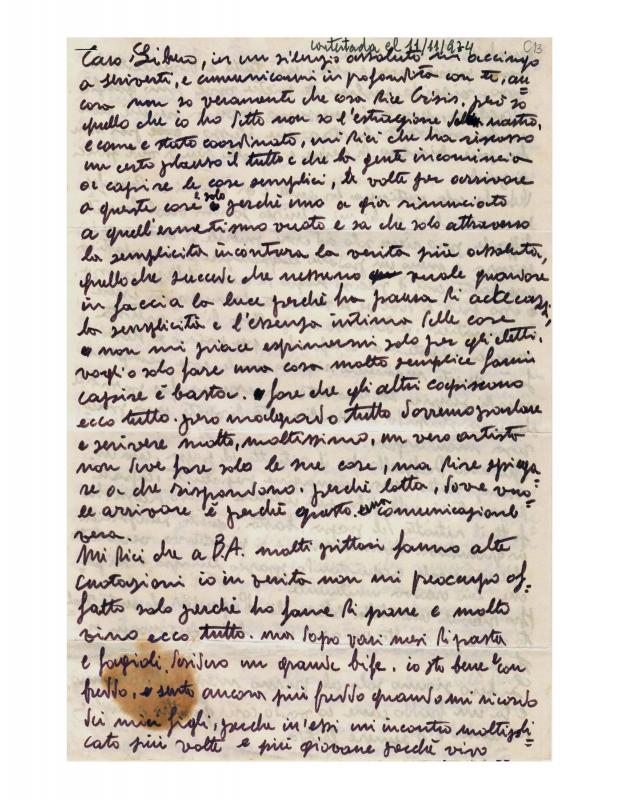 contestada el 11/11/974 C13
Caro Libero, in un silenzio assoluto mi accingo
a scriverti, e comunicarmi in profondità con te, an=
cora non so veramente che cosa dice Crisis, però so
quello che io ho detto non so l'estrazione del nastro,
e come è stato coordinato, mi dici che ha riscosso
un certo plauso il tutto e che la gente incomincia
a capire le cose semplici, te volte per arrivare
a queste cose è solo perché uno a già rinunciato
a quell'ermetismo vuoto e sa che solo attraverso
la semplicità incontra la verità più assoluta,
quello che succede che nessuno vuole guardare
in faccia la luce perché ha paura di accecarsi,
la semplicità e l'essenza intima delle cose
non mi piace esprimermi solo per gli eletti.
voglio solo fare una cosa molto semplice farmi
capire è basta. fare che gli altri capiscono
ecco tutto. però malgrado tutto dovremo parlare
e scrivere molto, moltissimo, un vero artista
non deve fare solo le sue cose, ma dire spiega
re a che rispondono. perché lotta, dove vuo=
le arrivare è perché questo. comunicazione
vera.
Mi dici che a B.A. molti pittori fanno alte
quotazioni io in verità non mi preocupo af=
fatto solo perché ho fame di pane e molto
vino ecco tutto. ma dopo vari mesi di pasta
e fagioli, desidero un grande bife. io sto bene con
freddo, e sento ancora più freddo quando mi ricordo
dei miei figli, perche in'essi mi incontro moltipli
cato più volte e più giovane perché vivo